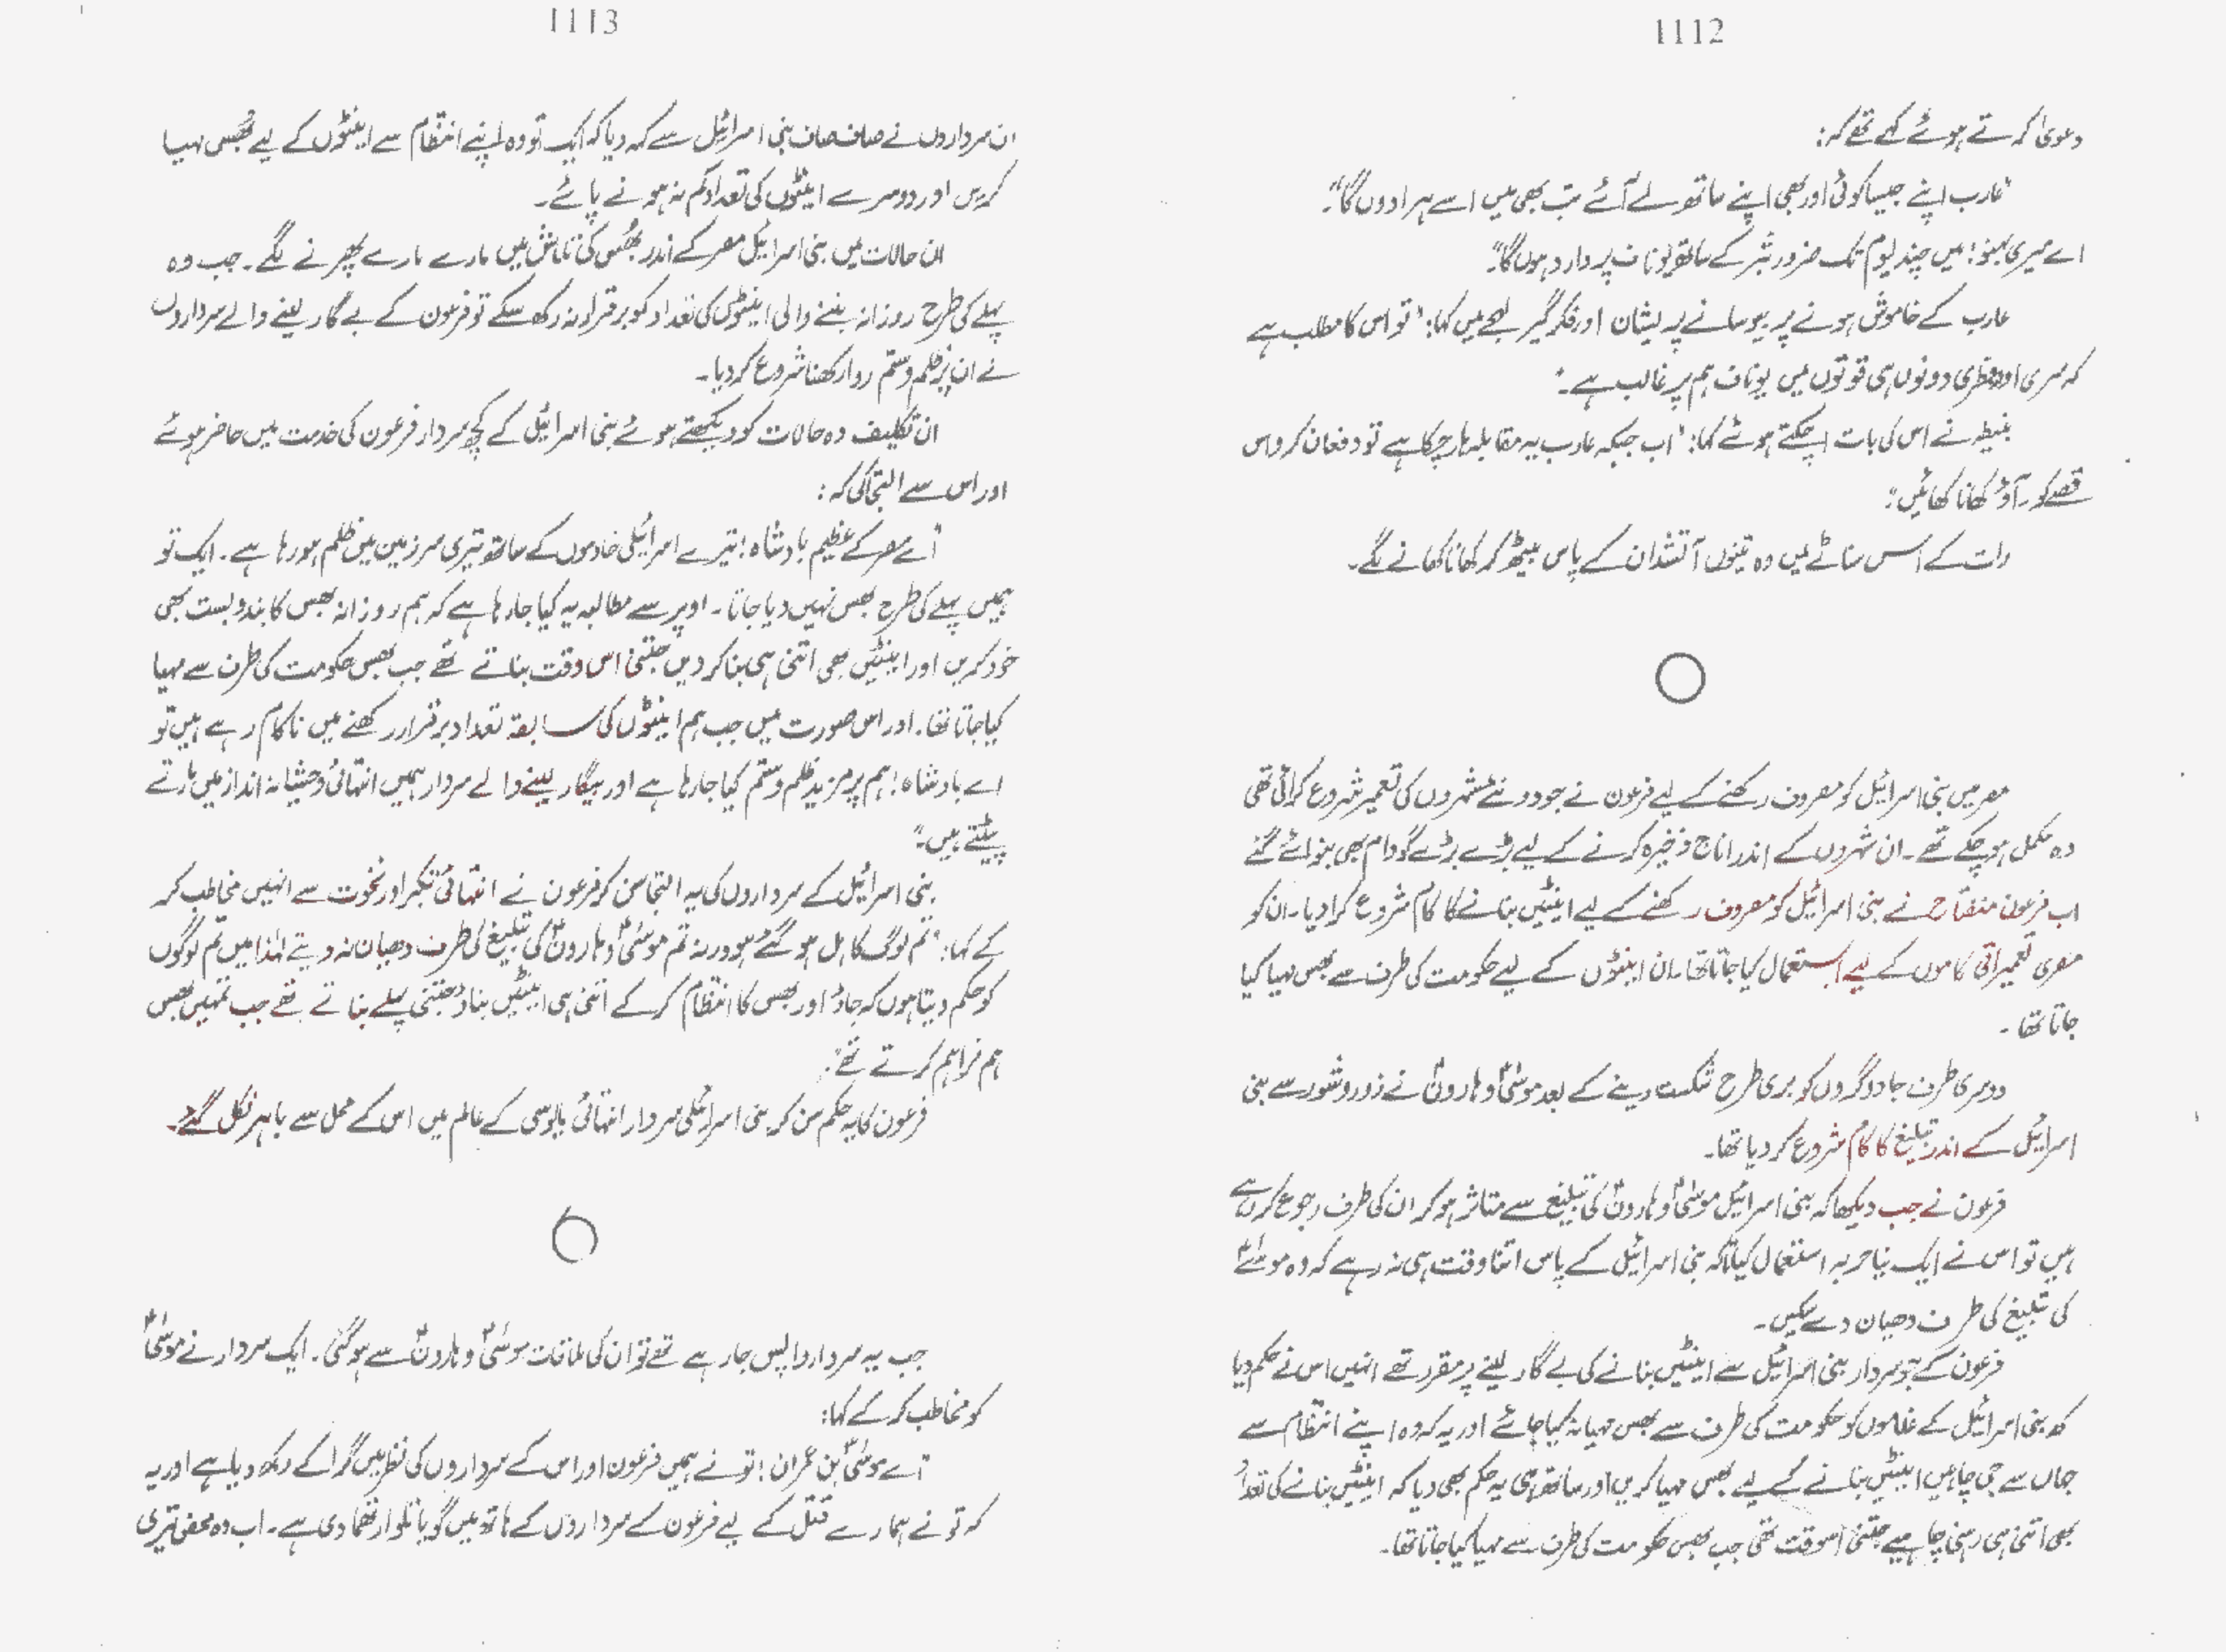 1112
دعویٰ کرتے ہوئے کہے تھے کہ:
"عارب اپنے جیسا کوئی اور بھی اپنے ساتھ لے آئے تب بھی میں اسے ہرا دوں گا"۔
اے میری بہنو! میں چند یوم تک ضرور شبر کے ساتھ یوناف پر وارد ہوں گا"۔
عارب کے خاموش ہونے پر بیوسا نے پریشان اور فکر گیر لہجے میں کہا: "تو اس کا مطلب ہے
کہ سری اور فطری دونوں ہی قوتوں میں یوناف ہم پر غالب ہے۔"
بنیطہ نے اس کی بات اچکتے ہوئے کہا: "اب جبکہ عارب یہ مقابلہ ہار چکا ہے تو دفعان کرو اس
قصے کو۔ آؤ کھانا کھائیں"۔
رات کے اس سناٹے میں وہ تینوں آتشدان کے پاس بیٹھ کر کھانا کھانے لگے۔
مصر میں بنی اسرائیل کو مصروف رکھنے کے لیے فرعون نے جو دو نئے شہروں کی تعمیر شروع کرائی تھی
وہ مکمل ہو چکے تھے۔ ان شہروں کے اندر اناج ذخیرہ کرنے کے لیے بڑے بڑے گودام بھی بنوائے گئے
اب فرعون منفتاح نے بنی اسرائیل کو مصروف رکھنے کے لیے اینٹیں بنانے کا کام شروع کرا دیا۔ ان کو
مصری تعمیراتی کاموں کے لیے استعمال کیا جاتا تھا۔ ان اینٹوں کے لیے حکومت کی طرف سے بھس مہیا کیا
جاتا تھا۔
دوسری طرف جادوگروں کو بری طرح شکست دینے کے بعد موسیٰؑ و ہارونؑ نے زور و شور سے بنی
اسرائیل کے اندر تبلیغ کا کام شروع کر دیا تھا۔
فرعون نے جب دیکھا کہ بنی اسرائیل موسیٰؑ و ہارونؑ کی تبلیغ سے متاثر ہو کر ان کی طرف رجوع کر رہے
ہیں تو اس نے ایک نیا حربہ استعمال کیا تاکہ بنی اسرائیل کے پاس اتنا وقت ہی نہ رہے کہ وہ موسیٰؑ
کی تبلیغ کی طرف دھیان دے سکیں۔
فرعون کے جو سردار بنی اسرائیل سے اینٹیں بنانے کی بے گار لینے پر مقرر تھے انہیں اس نے حکم دیا
کہ بنی اسرائیل کے غلاموں کو حکومت کی طرف سے بھس مہیا نہ کیا جائے اور یہ کہ وہ اپنے انتظام سے
جہاں سے جی چاہیں اینٹیں بنانے کے لیے بھس مہیا کریں اور ساتھ ہی یہ حکم بھی دیا کہ اینٹیں بنانے کی تعداد
بھی اتنی ہی رہنی چاہیے جتنی اس وقت تھی جب بھس حکومت کی طرف سے مہیا کیا جاتا تھا۔
1113
ان سرداروں نے صاف صاف بنی اسرائیل سے کہہ دیا کہ ایک تو وہ اپنے انتظام سے اینٹوں کے لیے بھس مہیا
کریں اور دوسرے اینٹوں کی تعداد کم نہ ہونے پائے۔
ان حالات میں بنی اسرائیل مصر کے اندر بھس کی تلاش میں مارے مارے پھرنے لگے۔ جب وہ
پہلے کی طرح روزانہ بننے والی اینٹوں کی تعداد کو برقرار نہ رکھ سکے تو فرعون کے بے گار لینے والے سرداروں
نے ان پر ظلم و ستم روا رکھنا شروع کر دیا۔
ان تکلیف دہ حالات کو دیکھتے ہوئے بنی اسرائیل کے کچھ سردار فرعون کی خدمت میں حاضر ہوئے
اور اس سے التجا کی کہ:
"اے مصر کے عظیم بادشاہ! تیرے اسرائیلی خادموں کے ساتھ تیری سرزمین میں ظلم ہو رہا ہے۔ ایک تو
ہمیں پہلے کی طرح بھس نہیں دیا جاتا۔ اوپر سے مطالبہ یہ کیا جا رہا ہے کہ ہم روزانہ بھس کا بندوبست بھی
خود کریں اور اینٹیں بھی اتنی ہی بنا کر دیں جتنی اس وقت بناتے تھے جب بھس حکومت کی طرف سے مہیا
کیا جاتا تھا۔ اور اس صورت میں جب ہم اینٹوں کی سابقہ تعداد برقرار رکھنے میں ناکام رہے ہیں تو
اے بادشاہ! ہم پر مزید ظلم و ستم کیا جا رہا ہے اور بیگار لینے والے سردار ہمیں انتہائی وحشیانہ انداز میں مارتے
پیٹتے ہیں"۔
بنی اسرائیل کے سرداروں کی یہ التجا سن کو فرعون نے انتہائی تکبر اور نخوت سے انہیں مخاطب کر
کے کہا: "تم لوگ کاہل ہو گئے ہو ورنہ تم موسیٰؑ و ہارونؑ کی تبلیغ کی طرف دھیان نہ دیتے لہٰذا میں تم لوگوں
کو حکم دیتا ہوں کہ جاؤ اور بھس کا انتظام کر کے اتنی ہی اینٹیں بناؤ جتنی پہلے بناتے تھے جب تمہیں بھس
ہم فراہم کرتے تھے"۔
فرعون کا یہ حکم سن کر بنی اسرائیلی سردار انتہائی مایوسی کے عالم میں اس کے محل سے باہر نکل گئے۔
جب یہ سردار واپس جا رہے تھے تو ان کی ملاقات موسیٰؑ و ہارونؑ سے ہو گئی۔ ایک سردار نے موسیٰؑ
کو مخاطب کر کے کہا:
"اے موسیٰؑ بن عمران! تو نے ہمیں فرعون اور اس کے سرداروں کی نظر میں گرا کے رکھ دیا ہے اور یہ
کہ تو نے ہمارے قتل کے لیے فرعون کے سرداروں کے ہاتھ میں گویا تلوار تھما دی ہے۔ اب وہ محض تیری